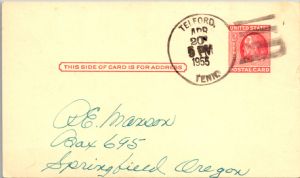 TELFORD,
APR
20
5 PM
1955
TENN.
UNITED STATES
POSTAL CARD
THIS SIDE OF CARD IS FOR ADDRESS
R.E. Manson
Box 695
Springfield Oregon